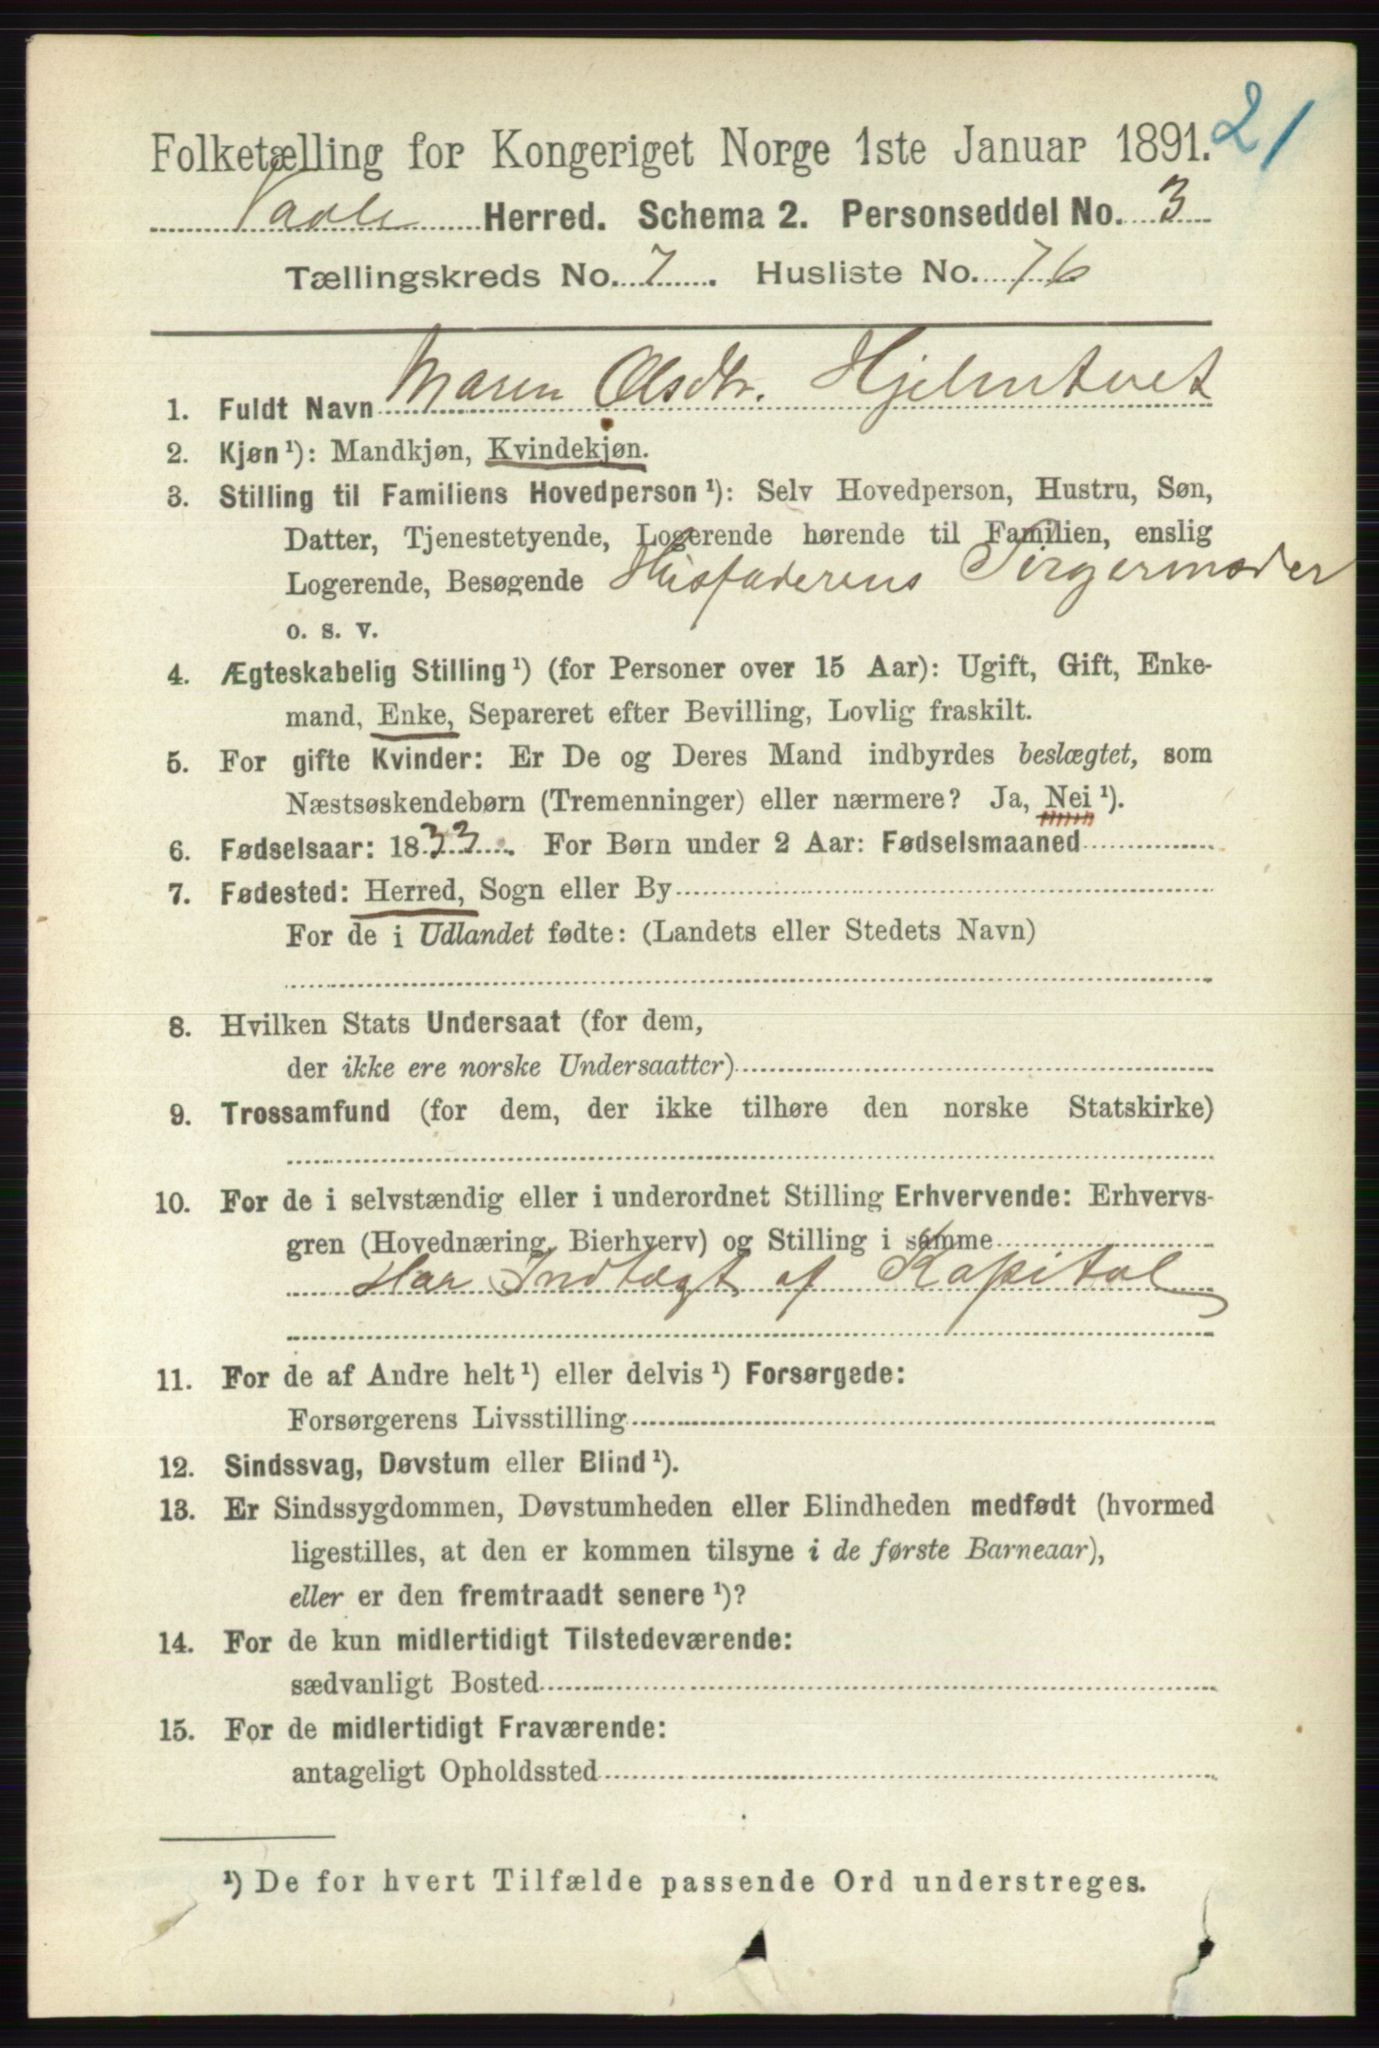 21
Folketælling for Kongeriget Norge 1ste Januar 1891.
Vaale Herred. Schema 2. Personseddel No. 3
Tællingskreds No. 7. Husliste No. 76
1. Fuldt Navn Maren Olsdtr. Hjelmtvet
2. Kjøn¹): Mandkjøn, Kvindekjøn.
3. Stilling til Familiens Hovedperson¹): Selv Hovedperson, Hustru, Søn,
Datter, Tjenestetyende, Logerende hørende til Familien, enslig
Logerende, Besøgende Husfaderens Svigermoder
o. s. v.
4. Ægteskabelig Stilling¹) (for Personer over 15 Aar): Ugift, Gift, Enke-
mand, Enke, Separeret efter Bevilling, Lovlig fraskilt.
5. For gifte Kvinder: Er De og Deres Mand indbyrdes beslægtet, som
Næstsøskendebørn (Tremenninger) eller nærmere? Ja, Nei¹).
6. Fødselsaar: 1833. For Børn under 2 Aar: Fødselsmaaned
7. Fødested: Herred, Sogn eller By
For de i Udlandet fødte: (Landets eller Stedets Navn)
8. Hvilken Stats Undersaat (for dem,
der ikke ere norske Undersaatter)
9. Trossamfund (for dem, der ikke tilhøre den norske Statskirke)
10. For de i selvstændig eller i underordnet Stilling Erhvervende: Erhvervs-
gren (Hovednæring, Bierhverv) og Stilling i samme
Har Indtægt af Kapital
11. For de af Andre helt¹) eller delvis¹) Forsørgede:
Forsørgerens Livsstilling
12. Sindssvag, Døvstum eller Blind¹).
13. Er Sindssygdommen, Døvstumheden eller Blindheden medfødt (hvormed
ligestilles, at den er kommen tilsyne i de første Barneaar),
eller er den fremtraadt senere¹)?
14. For de kun midlertidigt Tilstedeværende:
sædvanligt Bosted
15. For de midlertidigt Fraværende:
antageligt Opholdssted
¹) De for hvert Tilfælde passende Ord understreges.